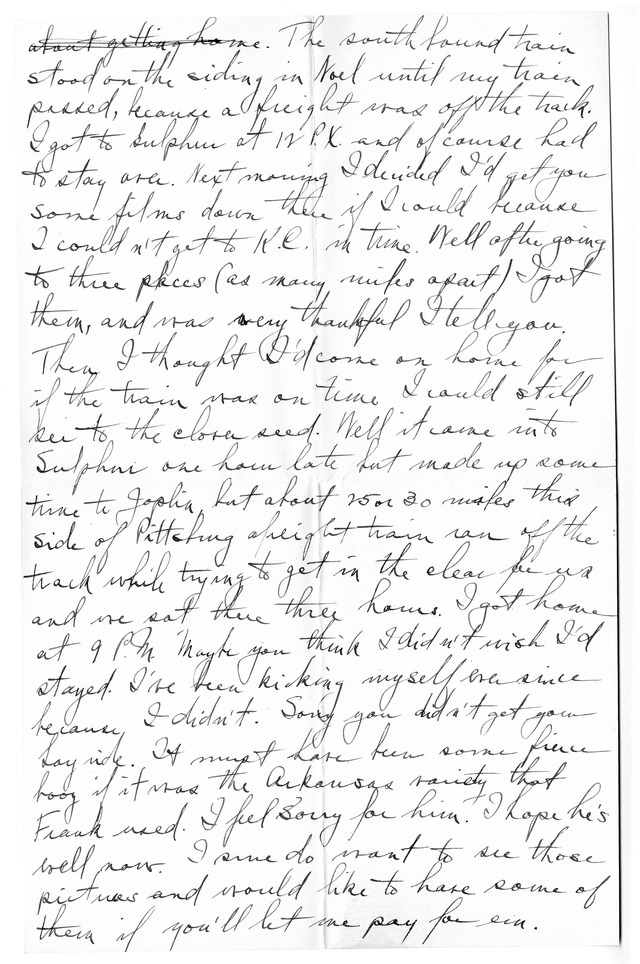 about getting home. The southbound train
stood on the siding in Noel until my train
passed, because a freight was off the track.
I got to Sulphur at 12 P.X. and of course had
to stay over. Next morning I decided I'd get you
some films down there if I could because
I couldn't get to K.C. in time. Well after going
to three places (as many miles apart) I got
them, and was very thankful I tell you.
Then I thought I'd come on home for
if the train was on time I could still
see to the clover seed. Well it came into
Sulphur one hour late but made up some
time to Joplin, but about 25 or 30 miles this
side of Pittsburg a freight train ran off the
track while trying to get in the clear for us
and we sat there three hours. I got home
at 9 P.M. Maybe you think I didn't wish I'd
stayed. I've been kicking myself ever since
because I didn't. Sorry you didn't get your
hay ride. It must have been some fierce
booz if it was the Arkansas variety that
Frank used. I feel sorry for him. I hope he's
well now. I sure do want to see those
pictures and would like to have some of
them if you'll let me pay for em.